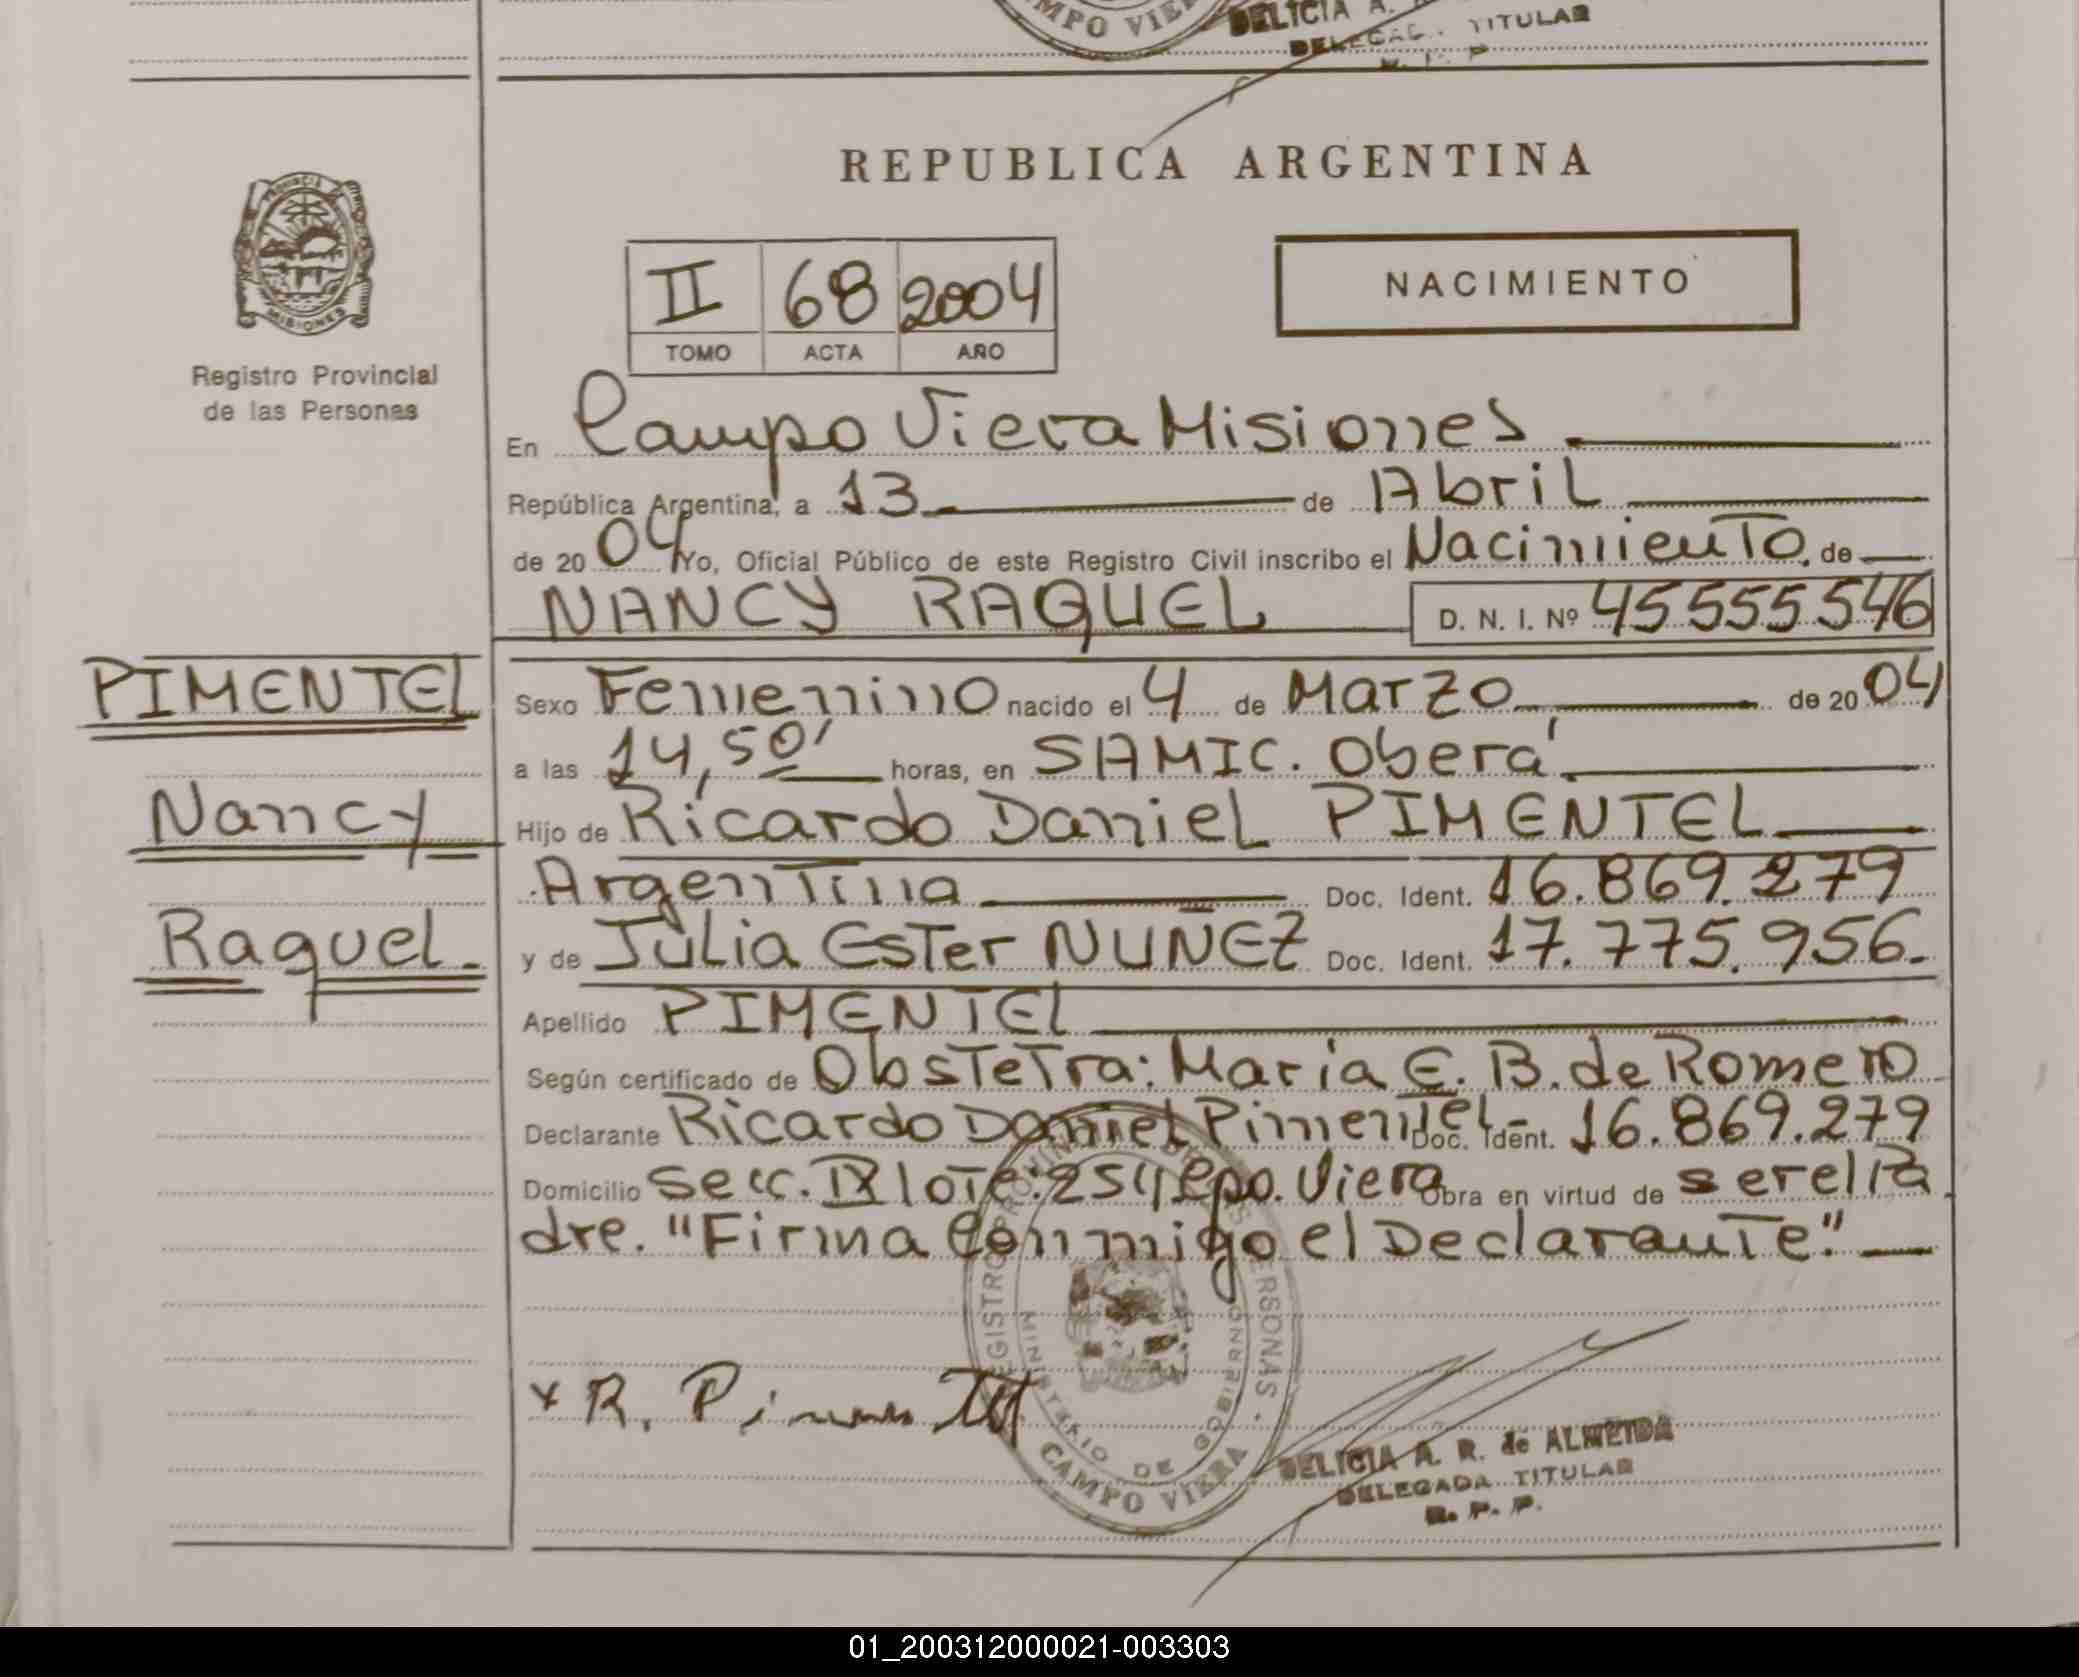 CAMPO VIERA
DELICIA A.
TITULAR
REPUBLICA ARGENTINA
PROVINCIA DE
MISIONES
Registro Provincial
de las Personas
II 68 2004
TOMO ACTA AÑO
NACIMIENTO
En Campo Viera Misiones
República Argentina, a 13 de Abril
de 2004 Yo, Oficial Público de este Registro Civil inscribo el Nacimiento. de
NANCY RAQUEL D. N. I. Nº 45555546
PIMENTEL
Nancy
Raquel.
Sexo Femenino nacido el 4 de Marzo de 2004
a las 14,50' horas, en SAMIC. Oberá.
Hijo de Ricardo Daniel PIMENTEL
Argentina Doc. Ident. 16.869.279
y de Julia Ester NUÑEZ Doc. Ident. 17.775.956.
Apellido PIMENTEL
Según certificado de Obstetra: María E. B. de Romero
Declarante Ricardo Daniel Pimentel- Doc. Ident. 16.869.279
Domicilio Secc. IX lote: 254 Cpo. Viera Obra en virtud de ser el Pa
dre. "Firma Conmigo el Declarante."
x R. Pimentel
REGISTRO PROVINCIAL DE LAS PERSONAS
MINISTERIO DE GOBIERNO
CAMPO VIERA
DELICIA A. R. de ALMEIDA
DELEGADA TITULAR
R. P. P.
01_200312000021-003303